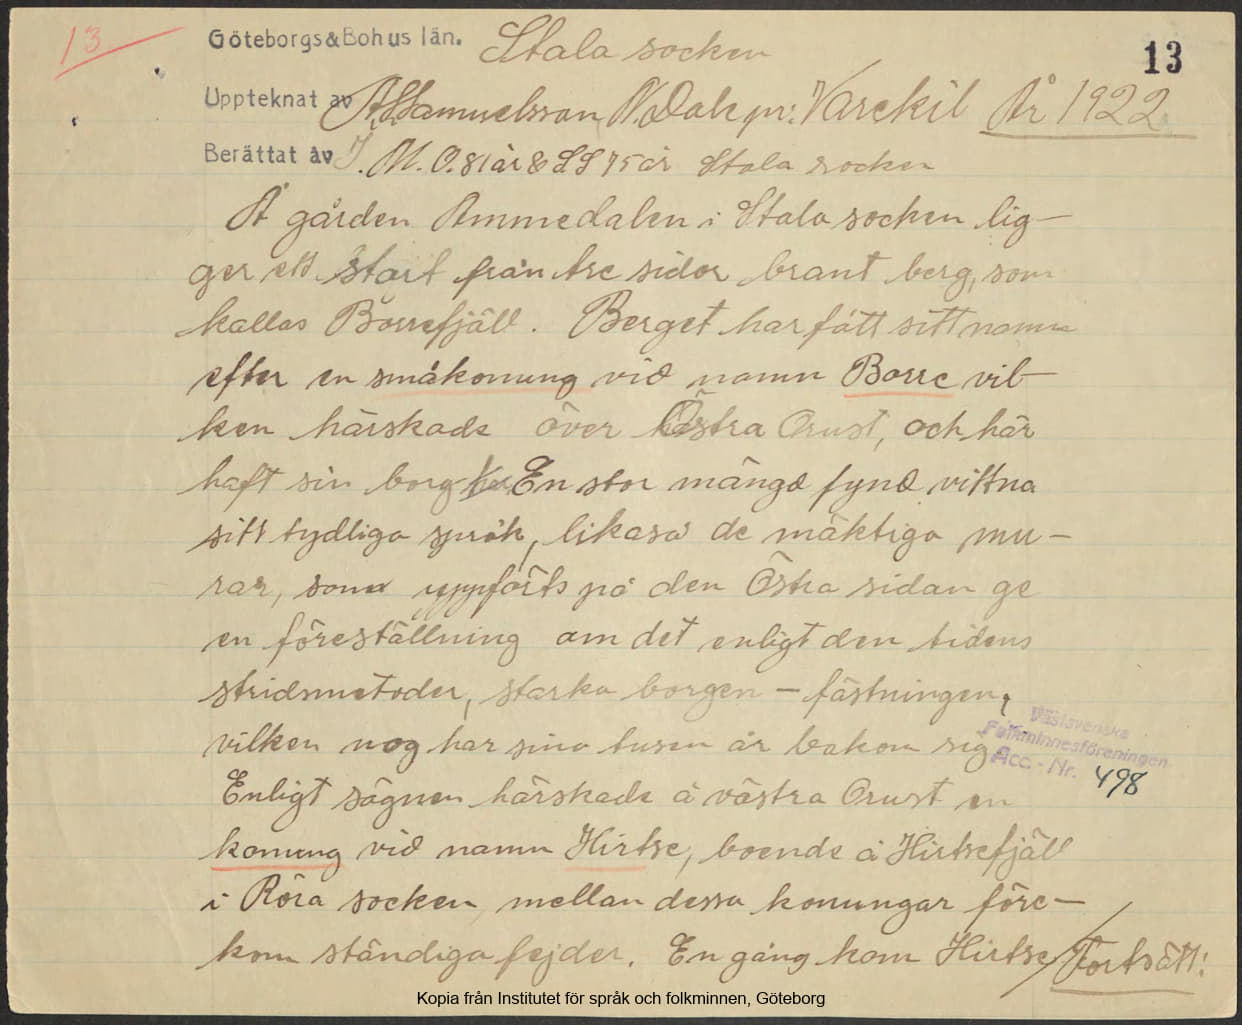 13
Göteborgs & Bohus län. Stala socken
13
Upptecknat av A. Samuelsson N. Dale pr: Varekil År 1922
Berättat av J. M. O. 81 år & L S 75 år Stala socken
Å gården Ammedalen i Stala socken lig-
ger ett stort från tre sidor brant berg, som
kallas Borrefjäll. Berget har fått sitt namn
efter en småkonung vid namn Borre vil-
ken härskade över Östra Orust, och här
haft sin borg. En stor mängd fynd vittna
sitt tydliga språk, likaså de mäktiga mu-
rar, som uppförts på den Östra sidan ge
en föreställning om det enligt den tidens
stridsmetoder, starka borgen - fästningen,
vilken nog har sina tusen år bakom sig
Västsvenska
Folkminnesföreningen
Acc.-Nr. 498
Enligt sägnen härskade å västra Orust en
konung vid namn Hirtse, boende å Hirtsefjäll
i Röra socken, mellan dessa konungar före-
kom ständiga fejder. En gång kom Hirtse / Fortsätt:
Kopia från Institutet för språk och folkminnen, Göteborg